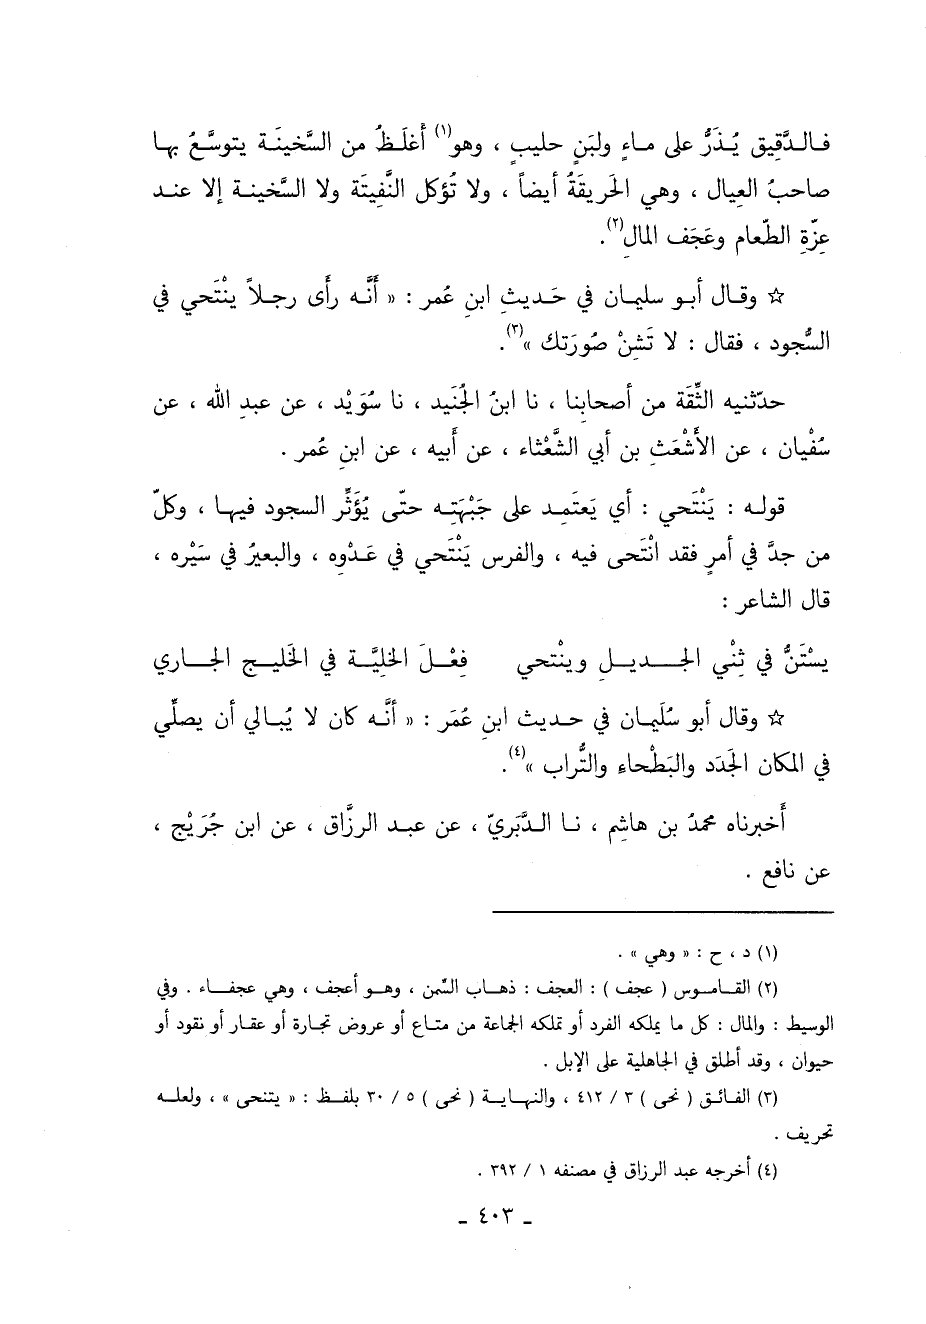 فالدَّقيق يُذَرُّ على ماءٍ ولبَنٍ حليبٍ ، وهو(١) أَغلَظُ من السَّخينَة يتوسَّعُ بها
صاحبُ العِيال ، وهي الحَريقَةُ أيضاً ، ولا تُؤكل النَّفِيتَة ولا السَّخينة إلا عند
عِزّةِ الطَّعامِ وعَجَف المال(٢).
☆ وقال أبو سليمان في حَديثِ ابنِ عُمر : « أَنَّه رأَى رجلاً ينْتَحي في
السُّجود ، فقال : لا تَشِنْ صُورَتك »(٣).
حدّثنيه الثِّقَة من أصحابنا ، نا ابنُ الجُنَيد ، نا سُوَيْد ، عن عبدِ الله ، عن
سُفْيان ، عن الأَشْعَثِ بن أبي الشَّعْثاء ، عن أَبيه ، عن ابنِ عُمر .
قوله : يَنْتَحي : أي يَعتَمِد على جَبْهَتِه حتّى يُؤَثِّر السجود فيها ، وكلّ
من جدَّ في أمرٍ فقد انْتَحى فيه ، والفرس يَنْتَحي في عَدْوِه ، والبعيرُ في سَيْره ،
قال الشاعر :
يسْتَنُّ في ثِنْيِ الجديلِ وينْتحي فِعْلَ الخليَّة في الخَليجِ الجاري
☆ وقال أبو سُلَيمان في حديث ابنِ عُمَر : « أنَّه كان لا يُبالي أن يصلِّي
في المكان الجَدَد والبَطْحاء والتُّراب »(٤).
أَخبرناه محمدُ بن هاشِم ، نا الدَّبَريّ ، عن عبد الرزَّاق ، عن ابن جُرَيْج ،
عن نافع .
(١) د ، ح : « وهي » .
(٢) القاموس ( عجف ) : العجف : ذهاب السِّمن ، وهو أعجف ، وهي عجفاء . وفي
الوسيط : والمال : كل ما يملكه الفرد أو تملكه الجماعة من متاع أو عروض تجارة أو عقار أو نقود أو
حيوان ، وقد أطلق في الجاهلية على الإبل .
(٣) الفائق ( نحى ) ٣ / ٤١٢ ، والنهاية ( نحى ) ٥ / ٣٠ بلفظ : « يتنحى » ، ولعله
تحريف .
(٤) أخرجه عبد الرزاق في مصنفه ١ / ٣٩٢ .
- ٤٠٣ -